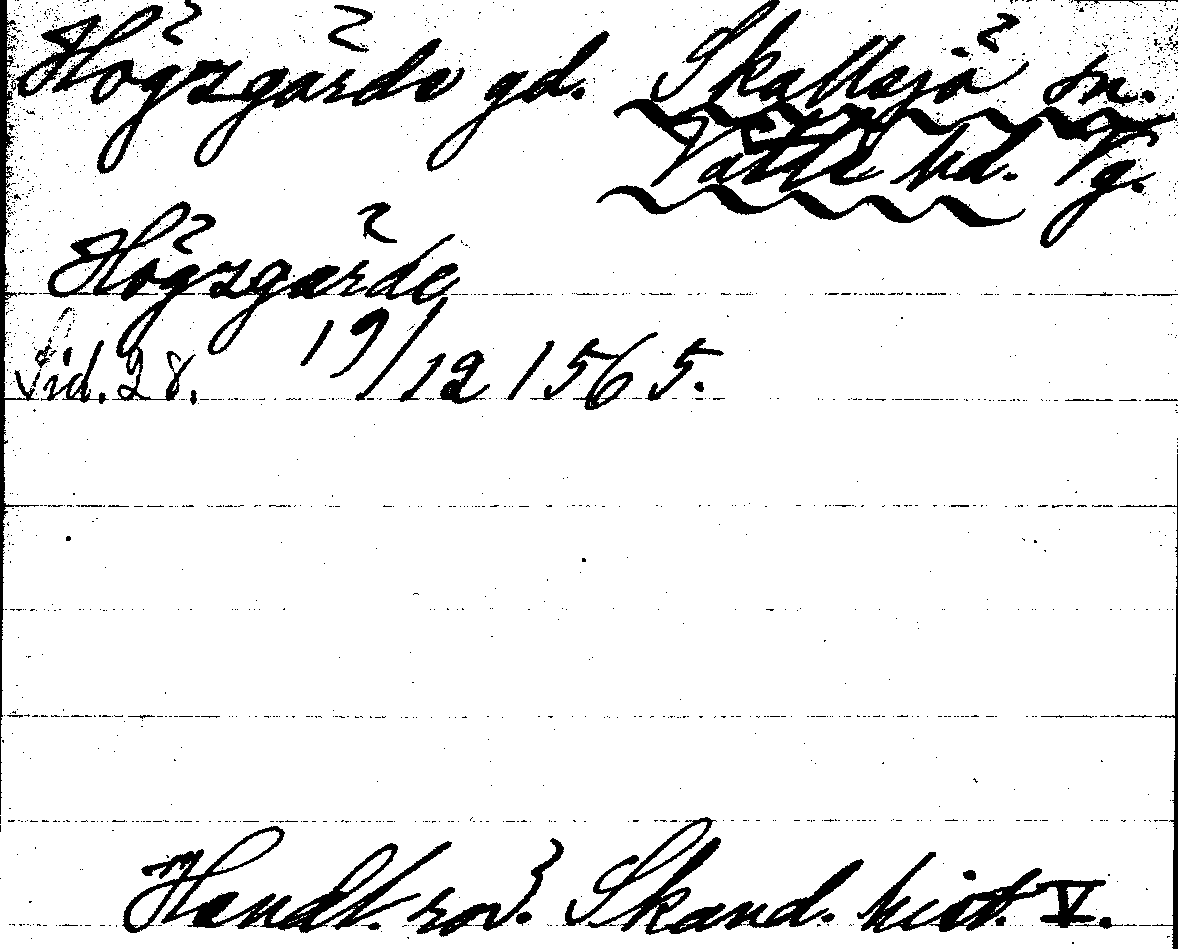 Högsgärde gd. Skallsjö sn.
Vättle hd. Vg.
Högsgärde
Sid. 28. 19/12 1565.
Handl. rör. Skand. hist. V.